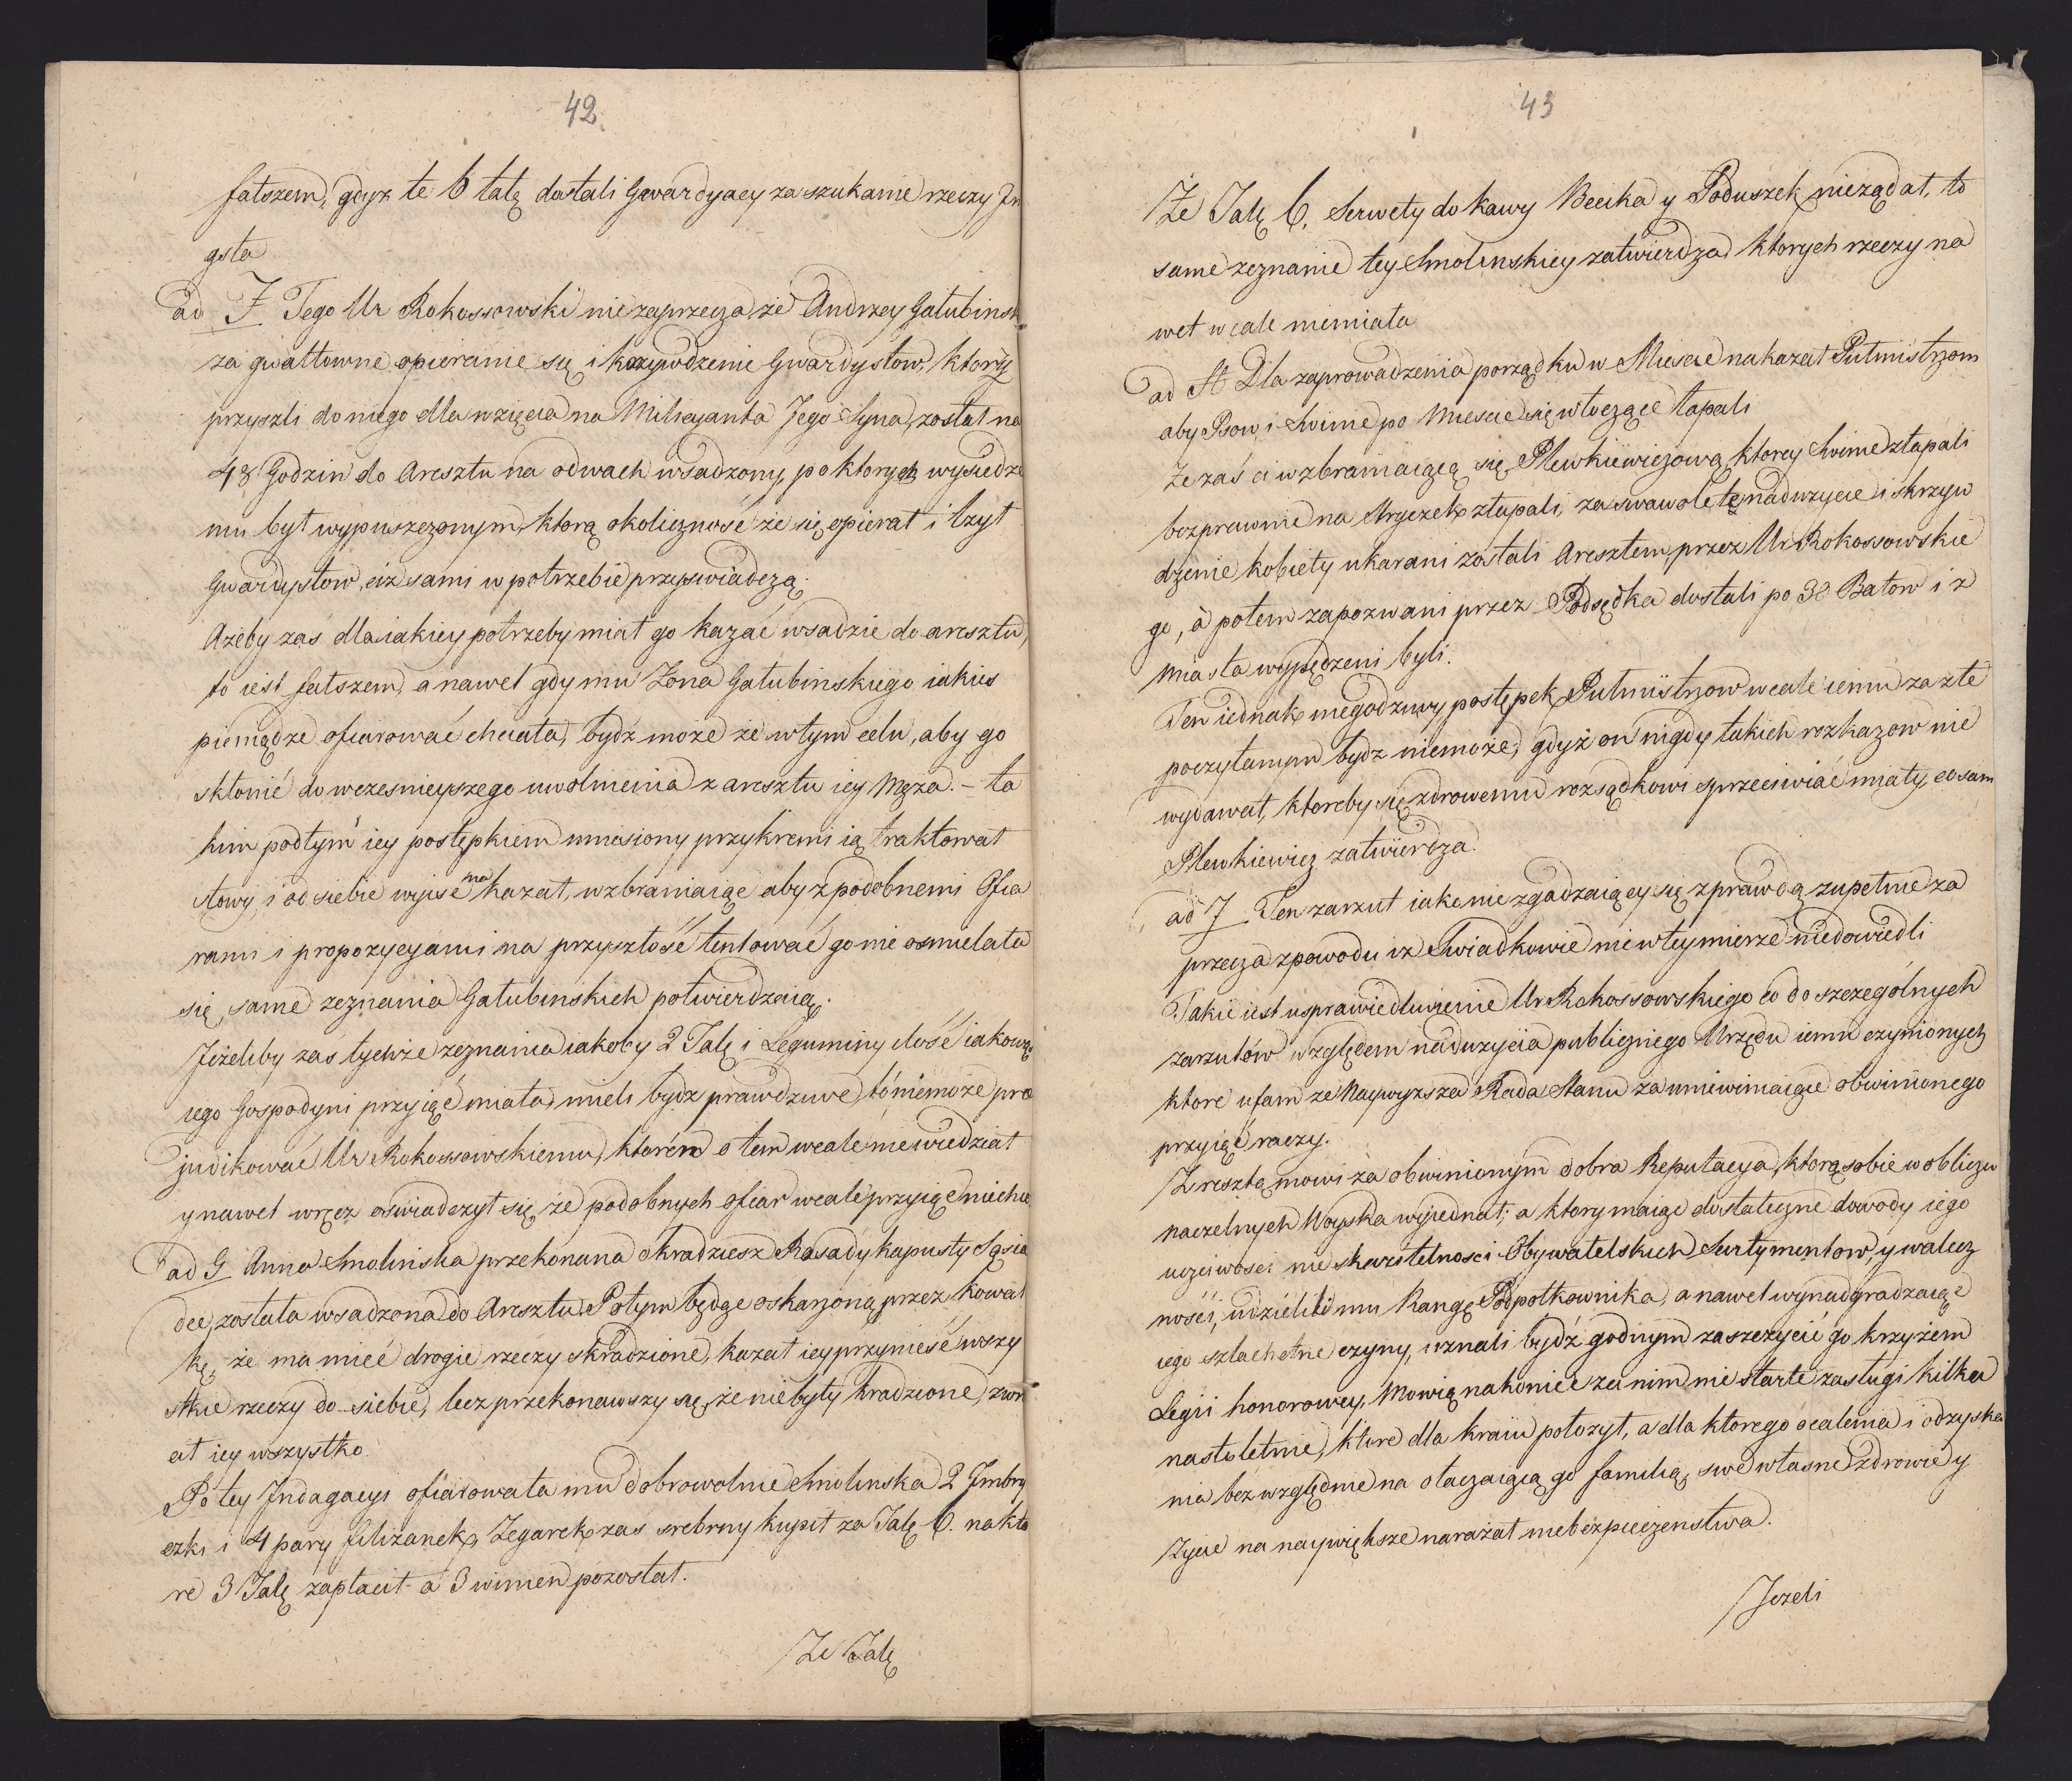 42.
fałszem, gdyż te 6 talę dostali Gwardyacy za szukanie rzeczy Jn
gsta
ad F Tego Ur Rokossowski nie zaprzecza, że Andrzey Gałubinsk
za gwałtowne opieranie się i krzywdzenie Gwardystow, ktorzy
przyszli do niego dla wzięcia na Milicyanta Jego Syna, został na
48 Godzin do Aresztu na odwach wsadzony, po ktorych wysiedze
niu był wypuszczonym, ktorą okoliczność że się opierał i lżył
Gwardystow, ciż sami w potrzebie przyswiadczą.
Ażeby zaś dla iakiey potrzeby miał go kazać wsadzić do aresztu,
to iest fałszem, a nawet gdy mu Żona Gałubinskiego iakies
pieniądze ofiarować chciała, bydź może że w tym celu, aby go
skłonić do wczesnieyszego uwolnienia z aresztu iey Męża. – ta
kim podłym iey postępkiem uniesiony przykremi ią traktował
słowy, i od siebie wyiść nakazał, wzbraniaiąc aby z podobnemi Ofia
rami i propozycyami na przyszłość tentować go nie osmielała
się, same zeznania Gałubinskich potwierdzaią.
Jeżeliby zaś tychże zeznania iakoby 2 Talę i Leguminy ilość iakową
iego Gospodyni przyiąć miała, mieli bydź prawdziwe, to niemoże prae
judikować Ur Rokossowskiemu, ktoren o tem wcale niewiedział
y nawet wręcz oswiadczył się, że podobnych ofiar wcale przyiąć niechce
ad G Anna Smolinska przekonana o kradziesz Rasady kapusty Sąsia
dce, została wsadzona do Aresztu. Potym będąc oskarżoną przez Kowal
kę, że ma mieć drogie rzeczy skradzione, kazał iey przynieść wszy
stkie rzeczy do siebie, lecz przekonawszy się, że niebyły kradzione, zwró
cił iey wszystko.
Po tey Jndagacyi ofiarowała mu dobrowolnie Smolinska 2 Jmbry
czki i 4 pary filiżanek, Zegarek zaś srebrny kupił za Talę 6. na kto
re 3 Talę zapłacił a 3 winien pozostał.
Że Talę
43
Że Talę 6. Serwety do kawy Becika y Poduszek nieżądał, to
same zeznanie tey Smolinskiey zatwierdza, ktorych rzeczy na
wet wcale niemiała
ad H Dla zaprowadzenia porządku w Miescie nakazał Putmistrzom
aby Psow i Swinie po Miescie się włoczące łapali
że zaś ci wzbraniaiącą się Plewkiewiczową, ktorey Swinie złapali
bezprawnie na Stryczek złapali, za swawolę tę nadużycie i skrzyw
dzenie kobiety ukarani zostali Aresztem, przez Ur Rokossowskie
go, a potem zapozwani przez Podsędka dostali po 30 Batow i z
Miasta wypędzeni byli.
Ten iednak niegodziwy postępek Putmistrzow wcale iemu za złe
poczytanym bydz niemoże, gdyż on nigdy takich rozkazow nie
wydawał, ktoreby się zdrowemu rozsądkowi sprzeciwiać miały, co sam
Plewkiewicz zatwierdza.
ad J Ten zarzut iako nie zgadzaiący się z prawdą zupełnie za
przecza z powodu iż Swiadkowie nic w tey mierze niedowiedli
Takie iest usprawiedliwienie Ur Rokossowskiego co do szczególnych
zarzutów względem nadużycia publicznego Urzędu iemu czynionych
ktore ufam że Naywyższa Rada Stanu za uniewiniaiące obwinionego
przyiąć raczy.
Zresztą mowi za obwinionym dobra Reputacya, którą sobie w obliczu
naczelnych Woyska wyiednał; a ktorzy maiąc dostateczne dowody iego
uczciwości nieskazitelnosci Obywatelskich Sentymentow, y walecz
ności, udzielili mu Rangę Podpołkownika, a nawet wynadgradzaiąc
iego szlachetne czyny, uznali bydź godnym zaszczycić go krzyżem
Legii honorowey, Mowią nakoniec za nim nie starte zasługi kilka
nastoletnie, ktore dla kraiu położył, a dla ktorego ocalenia i odzyska
nia bez względnie na otaczaiącą go familią, swe własne zdrowie y
życie na naywiększe narażał niebezpieczenstwa.
Jezeli